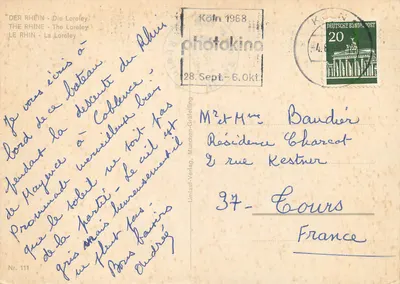 DER RHEIN - Die Loreley
THE RHINE - The Loreley
LE RHIN - La Loreley
Je vous écris à
bord de ce bateau
pendant la descente du Rhin
de Mayence à Coblence.
Promenade merveilleuse bien
que le soleil ne soit pas
de la partie. Le ciel est
gris mais heureusement il
ne pleut pas.
Bons baisers
Andrée
Nr. 111
Köln 1968
photokina
28. Sept.-6. Okt.
KÖLN
DEUTSCHE BUNDESPOST
20
Mr et Mme Baudier
Résidence Charcot
2 rue Kestner
37- Tours
France